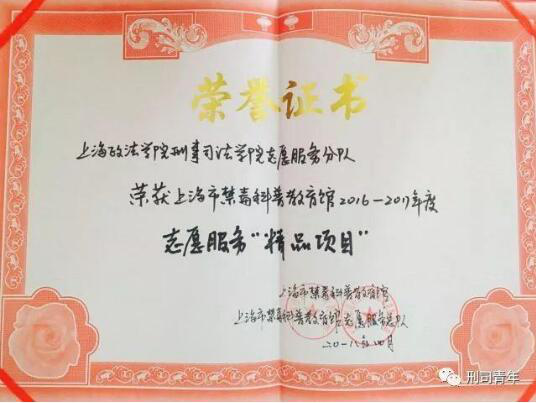 荣誉证书
上海政法学院刑事司法学院志愿服务分队
荣获上海市禁毒科普教育馆2016-2017年度
志愿服务“精品项目”
上海市禁毒科普教育馆
上海市禁毒科普教育馆志愿服务总队
刑司青年